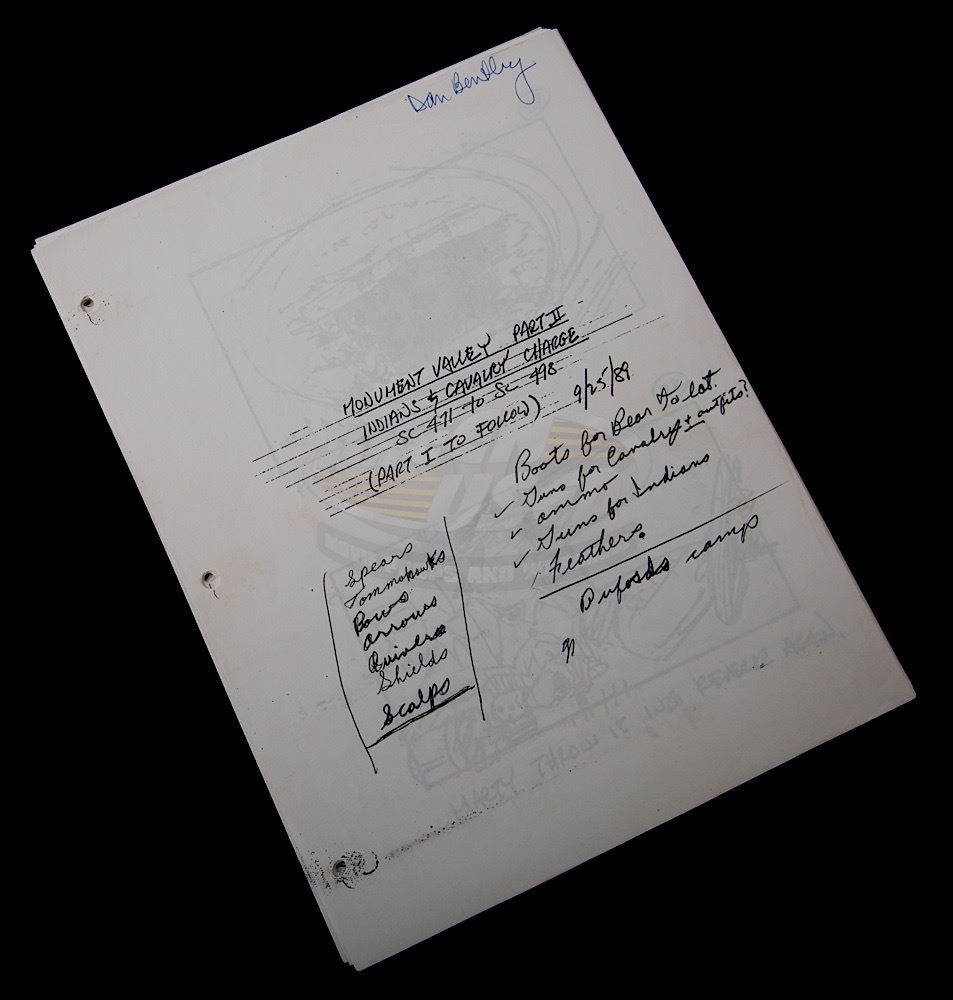 Dan Bentley
MONUMENT VALLEY PART II
INDIANS & CAVALRY CHARGE
SC 471 to SC 498
(PART I TO FOLLOW) 9/25/89
Boots for Bear To Lat.
Guns for Cavalry + outfits?
ammo
Guns for Indians
Feathers
camp
Spears
Tommahawks
Bows
arrows
Quivers
Shields
Scalps